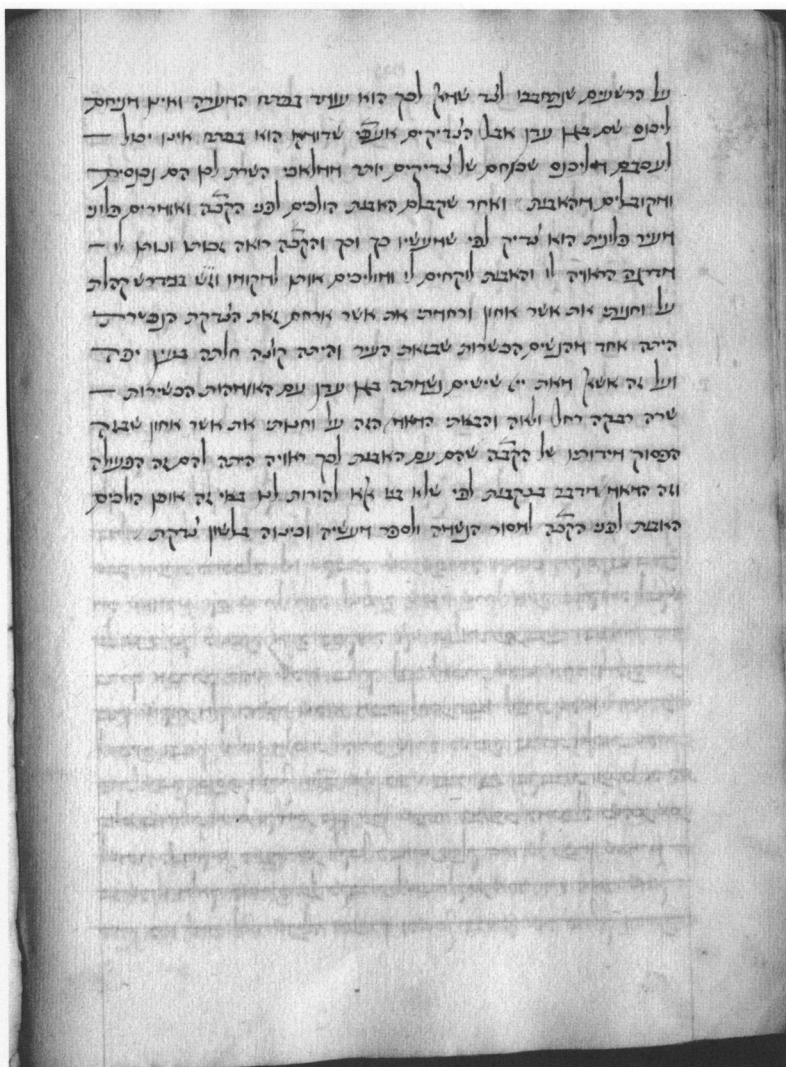 על הרשעים שנתחברו לצד שמאל לכך הוא עומד בפתח המערה ואינו מניחם
ליכנס שם בגן עדן אבל הצדיקים אעפ״י שדומה הוא בפתח אינו יכול
לעכבם מליכנס שכחם של צדיקים יותר ממלאכי השרת לכן הם נכנסים
ומקובלים מהאבות ואחר שקבלם האבות הולכים לפני הקב״ה ואומרים פלוני
מעיר פלונית הוא צדיק לפי שמעשיו כך וכך והקב״ה רואה זכותו ונותן לו
מדרגה הראויה לו והאבות לוקחים לו ומוליכים אותו למקומו ויש במדרש קהלת
על וחנותי את אשר אחון ורחמתי את אשר ארחם זאת הצדקת הנפטרת
היתה אחד מהנשים הכשרות שבזאת העיר והיתה קוצה חלתה בעין יפה
ועל זה אשא מאת יי׳ שישים נשמתה בגן עדן עם האמהות הכשירות
שרה רבקה רחל ולאה והבאתי המאמר הזה על וחנותי את אשר אחון שבזה
הפסוק מידותו של הקב״ה שהם עם האבות לכך ראויה היתה להם זה הפעולה
וזה המאמר מדבר בנקבות לפי שלא בא אלא להורות לנו באי זה אופן הולכים
האבות לפני הקב״ה למסור הנשמה ולספר מעשיה וכינוה בלשון צדקת